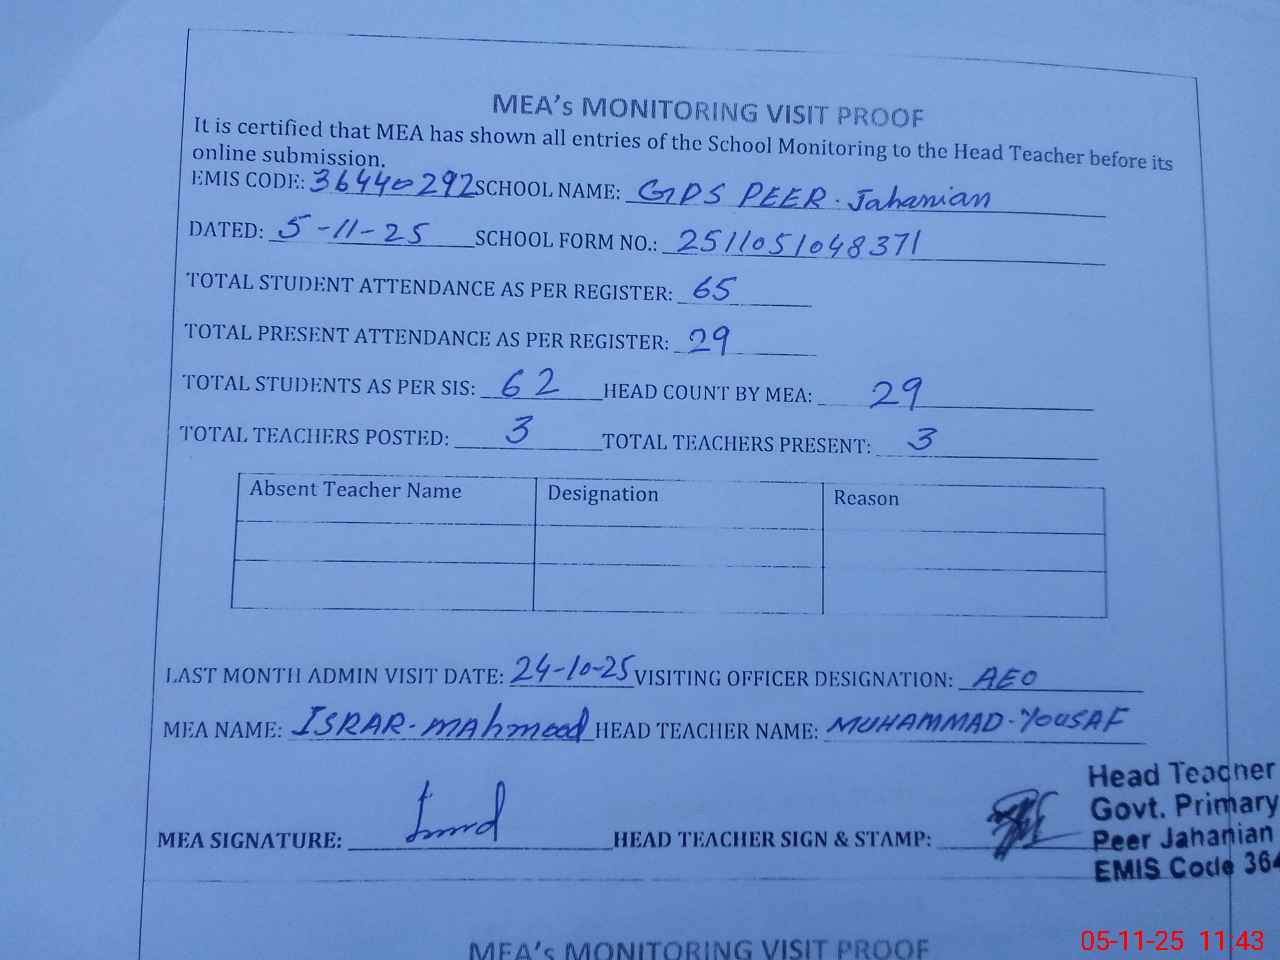 MEA's MONITORING VISIT PROOF
It is certified that MEA has shown all entries of the School Monitoring to the Head Teacher before its
online submission.
EMIS CODE: 36440292 SCHOOL NAME: GPS PEER. Jahanian
DATED: 5-11-25 SCHOOL FORM NO.: 2511051048371
TOTAL STUDENT ATTENDANCE AS PER REGISTER: 65
TOTAL PRESENT ATTENDANCE AS PER REGISTER: 29
TOTAL STUDENTS AS PER SIS: 62 HEAD COUNT BY MEA: 29
TOTAL TEACHERS POSTED: 3 TOTAL TEACHERS PRESENT: 3
Absent Teacher Name Designation Reason
LAST MONTH ADMIN VISIT DATE: 24-10-25 VISITING OFFICER DESIGNATION: AEO
MEA NAME: ISRAR-MAhmood HEAD TEACHER NAME: MUHAMMAD-YOUSAF
MEA SIGNATURE: HEAD TEACHER SIGN & STAMP:
Head Teacher
Govt. Primary
Peer Jahanian
EMIS Code 364
MEA's MONITORING VISIT PROOF
05-11-25 11:43